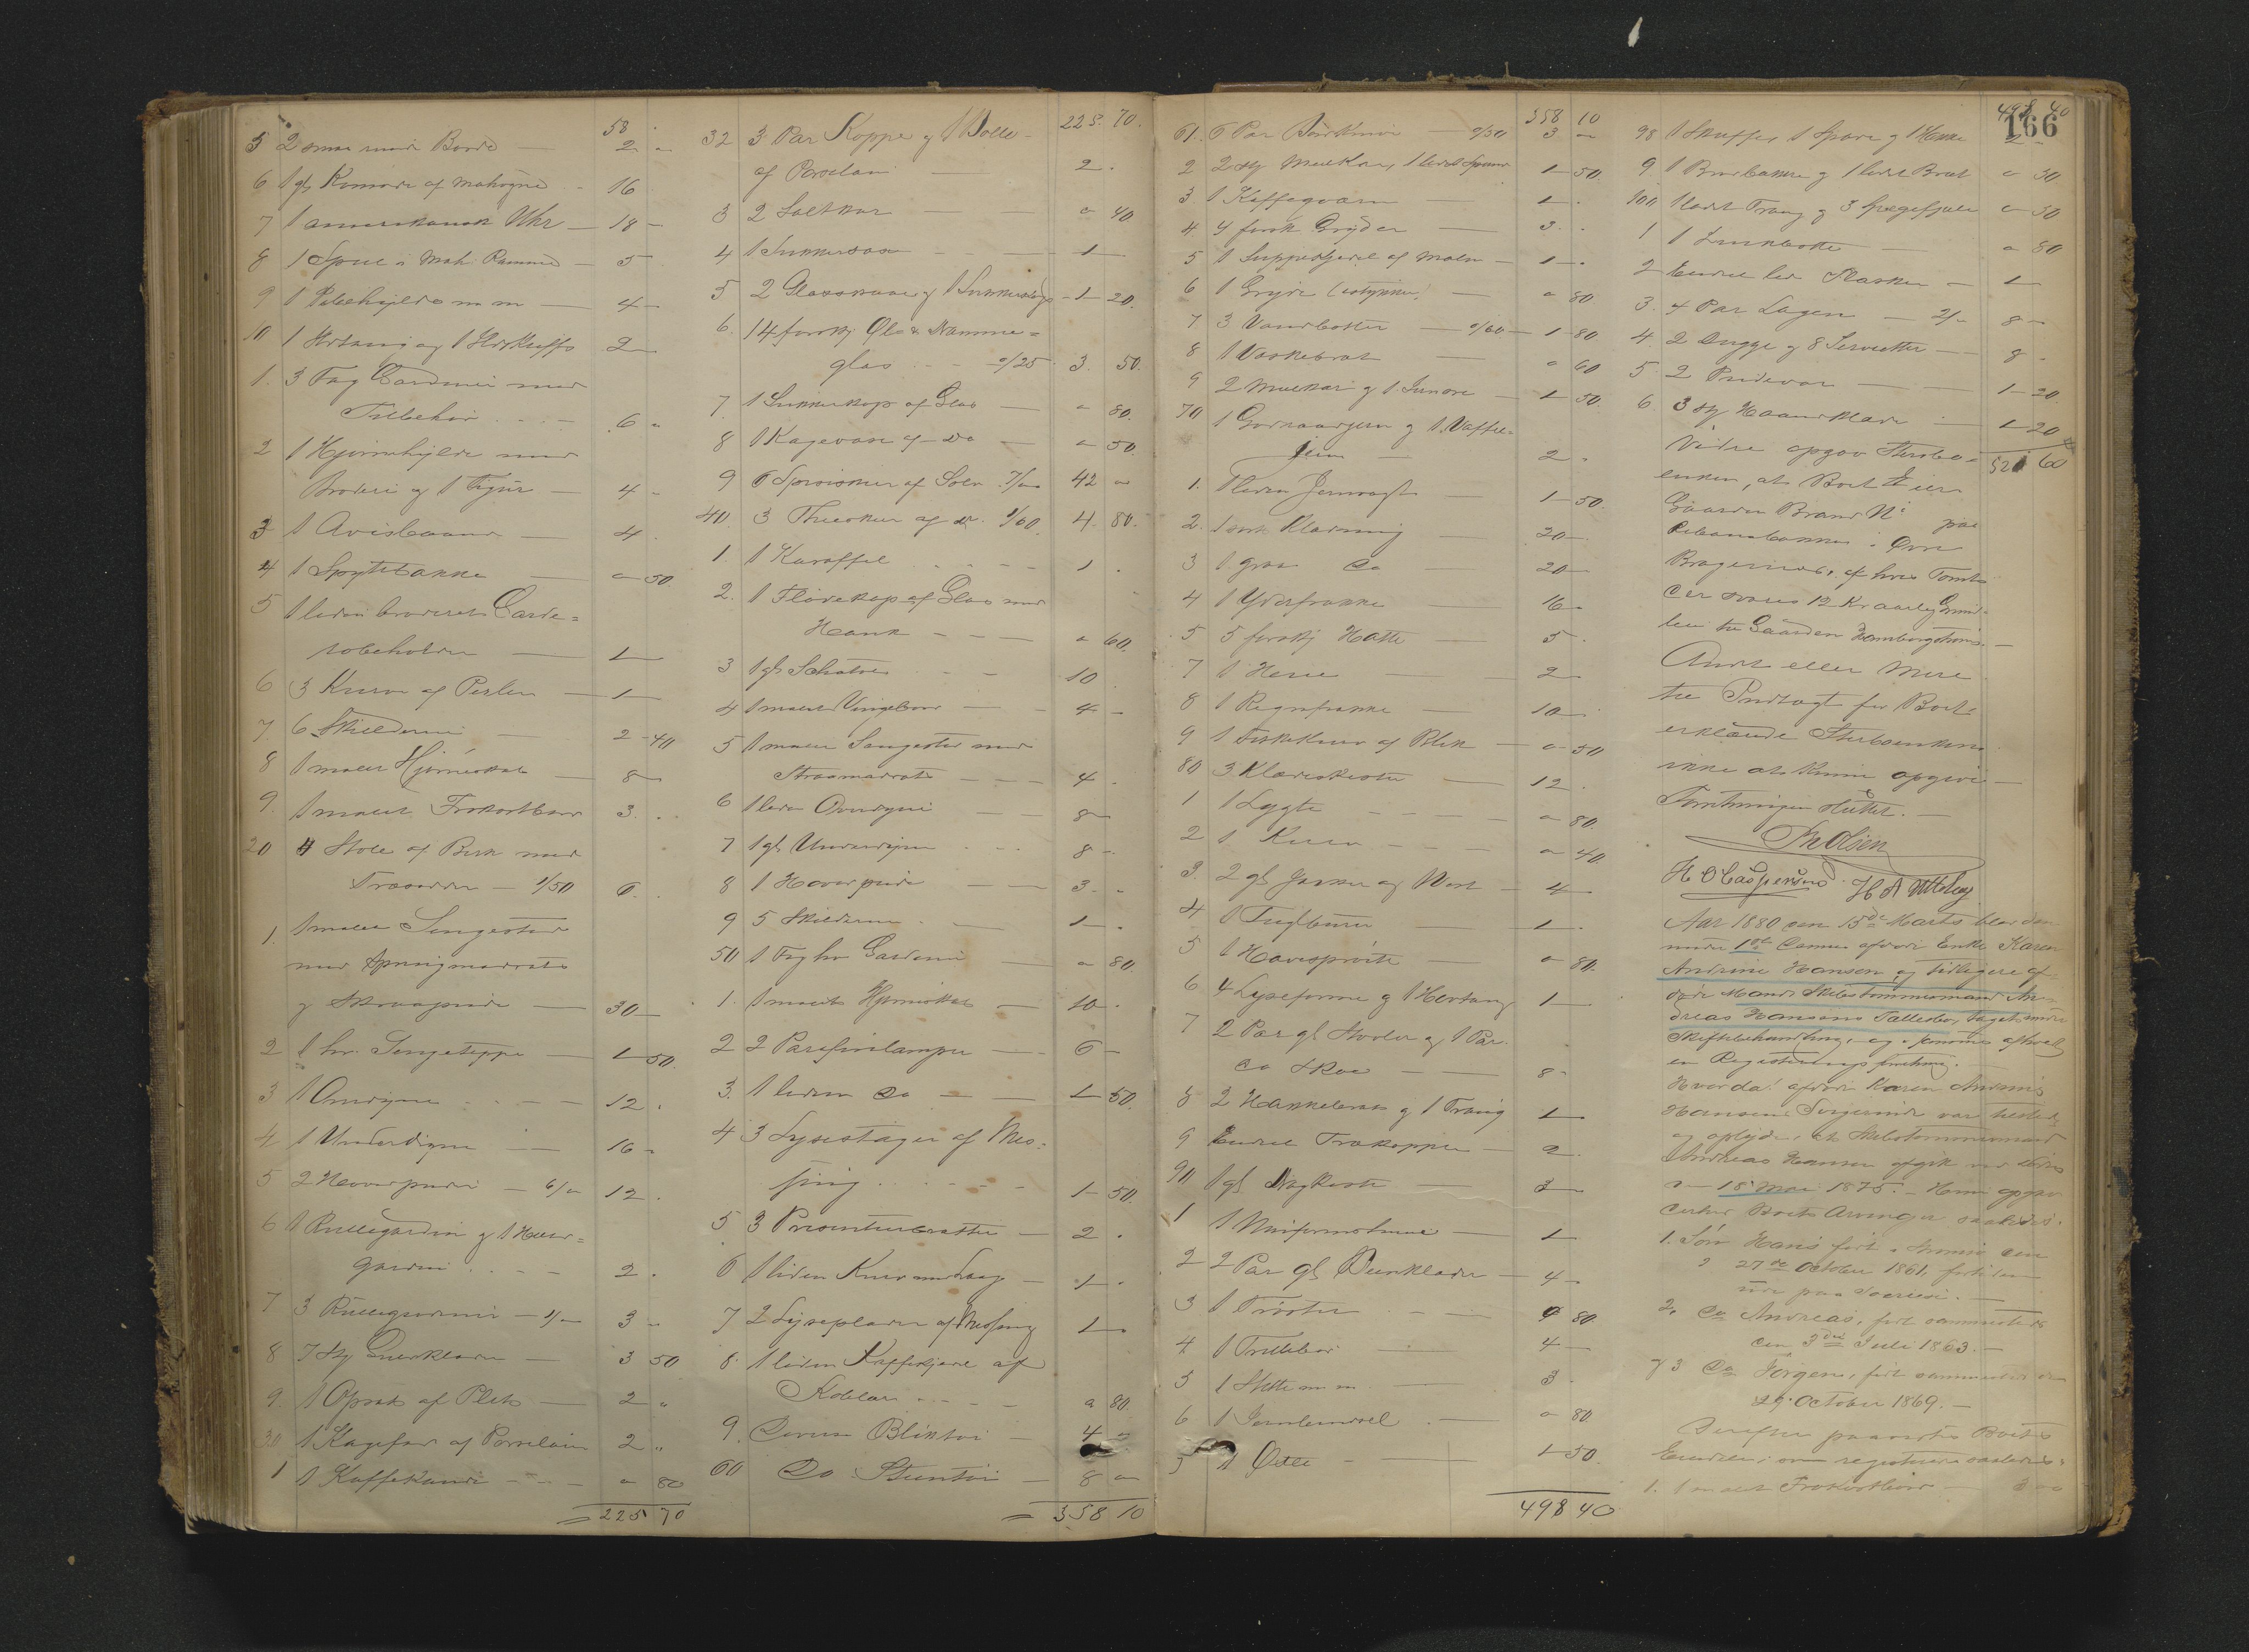 58
5 2 smaa Borde — 2 -
6 1 gl. Komode af Mahogni - 16
7 1 amerikansk Uhr — 18 -
8 1 Speil i Mah. Ramme — 5
9 1 Pibehylde m m — 4 -
10 1 Ildtang og 1 Ildskuffe 2
1. 3 Fag Gardiner med
Tilbehør - - - 6 "
2 1 Hjørnehylde med
Broderi og 1 Figur — 4 -
3 1 Avisbaand — 4
4 1 Spyttebakke " 50
5 1 liden broderet Garde=
robeholder — 1
6 3 Kurve af Perler — 1 -
7 6 Skilderier — 2 - 40
8 1 malet Hjørneskab — 8
9. 1 malet Frokostbord 3. -
20 4 Stole af Birk med
Træsæder — 1/50 6.
1. 1 malet Sengested
med Springmadrats
og Skraapude — 30 -
2 1 hv. Sengeteppe — 1 - 50.
3 1 Overdyne - - - 12.
4 1 Underdyne — 16 -
5 2 Hovedpuder — 6/" 12.
6 1 Rullegardin og 1
gardin - - - 2.
7 3 Rullegardiner — 1/" 3 -
8 7 Stk Gulvklæder — 3 50
9. 1 Opsats af Plet — 2 "
30 1 Kagefad af Porcelain 2 "
1 1 Kaffekande - - - " 80
225 70
225. 70.
32 3 Par Kopper og 1 Bolle -
af Porcelain — 2.
3 2 Saltkar — " 40
4 1 Sukkervase — 1 -
5 2 Glasskaale og 1 - 1 - 20.
6. 14 forskj. Øl & Dramme=
glas - - a/25. 3. 50.
7. 1 Sukkerkop af Glas — " 80.
8 1 Kagevase af Do — " 50.
9 6 Spiseskeer af Sølv 7/" 42 "
40. 3 Theeskeer af do. 1/60. 4. 80.
1. 1 Karaffel - - - - 1.
2. 1 Flødekop af Glas med
Hank - - - " 60.
3 1 gl. Schatol - - 10
4 1 malet Vingebord — 4 -
5 1 malet Sengested med
Straamadrats - - - 4.
6 1 liden Overdyne — 8
7 1 gl. Underdyne - - 8 -
8 1 Hovedpude — 3. "
9 5 Skilderier - — 1 - .
50 1 Fag hv. Gardiner — " 80.
1. 1 malet Hjørneskab — 10 -
2 2 Parafinlamper — 6 -
3. 1 liden Do — 1 - 50.
4 3 Lysestager af Mes=
sing - - - - 1 - 50.
5 3 Presenterbretter — 2.
6 1 liden Kurv med Laag — 1 -
7 2 Lyseplader af Messing 1 -
8. 1 liden Kaffekjedel af
Kobber - - - " 80.
9. Diverse Bliktøi — 4 "
60 Do Stentøi — 8 "
358 10
358 10
61. 6 Par Bordknive — a/50 3 "
2 2 Stk Melkekar, 1 lidet Spand 1 - 50.
3 1 Kaffeqværn — 1 - .
4 4 forsk. Gryder — 3. .
5 1 Suppekjedel af Malm — 1 - .
6 1 Gryde (istykker) — " 80
7 3 Vandbøtter — a/60 — 1 - 80
8 1 Vaskebræt — " 60
9 2 Melkekar og 1 — 1 - 50.
70 1 Goroaadjern og 1 Vaffel=
jern — 2 -
1. 1 liden Jernvægt — 1 - 50.
2. 1 sort Klædning — 20 -
3 1 graa Do — 20 -
4 1 Yderfrakke — 16 -
5 5 forskj. Hatte — 5 .
7 1 Herre — 2
8 1 Regnfrakke — 10 -
9 1 Fiskekurv af Blik — " 50
80 3 Klædeskister — 12.
1 1 Lygte - - - - " 80.
2 1 Kurv - - - " 40.
3. 2 gl. Jakker og Vest — 4 -
4 1 Fuglbuur — 1 -
5 1 Havesprøite — " 80.
6 4 Lyseforme og 1 1 -
7 2 Par gl. Støvler og 1 Par
do Skoe — 8 -
8 2 Hakkebræt og 1 Traug 1
9 Endel Trækopper — 2.
90 1 gl. Dragkiste — 3
1 1 Uniformshue — 1
2 2 Par gl. Benklæder — 4 -
3 1 Trøie - - — " 80
4 1 Trillebør — 4 -
5 1 m. m. — 3.
6 1 — " 80
1 - 50.
498 40
498 40
166
98 1 Skuffe, 1 Spade og 1 Hakke 2 -
9 1 Brødbakke og 1 lidet Bræt " 30
100 1 lidet Traug og 3 " 50
1 1 — " 80
2 Endel Flasker — 1
3. 4 Par Lagen — 2/" 8 -
4. 2 Duge og 8 Servietter — 8 -
5. 2 Pudevar — 1 - 20.
6. 3 Stk Haandklæde — 1 20
521 60
Videre opgav Sterbo=
enken, at Boet eier
Gaarden Brand No paa
i Øvre
Bragernæs, af hvis Tomt
der svares 12 Kr aarlig Grund=
leie til Gaarden Hamborgstrøm. —
Andet eller Mere
til Indtægt for Boet
erklærede Sterboenken
ikke at kunne opgive —
Forretningen sluttet. —
Th Olsen
H. O. Caspersen. H A
Aar 1880 den 15de Marts blev den
under 1ste dennes afdøde Enke Karen
Andrine Hansen og tidligere af=
døde Mand Skibstømmermand An=
dreas Hansens Fællesbo, taget under
Skiftebehandling, og sammes afholdt
en Registreringsforretning. —
Hvorda afdøde Karen Andrine
Hansens var tilstede
og oplyste, at Skibstømmermand
Andreas Hansen afgik ved Døden
18 Mai 1875. — Hun opgav
Boets Arvinger saaledes.
1. Søn Hans født i den
27de October 1861, for tiden
ude paa Søreise. —
2. Do Andreas, født sammesteds
den 3die Juli 1863. —
3 Do Jørgen, født sammesteds den
29. October 1869. —
Derefter paavistes Boets
Eiendele, som registreredes saaledes:
1. 1 malet Frokostbord — 3 "